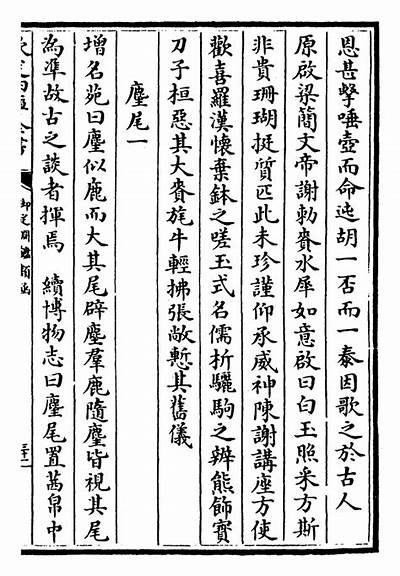 恩甚擊唾壺而命迍胡一否而一泰因歌之於古人
原啟梁簡文帝謝勅賚水犀如意啟曰白玉照采方斯
非貴珊瑚挺質匹此未珍謹仰承威神陳謝講座方使
歡喜羅漢懷棄鉢之嗟王式名儒折驪駒之辨熊飾寳
刀子桓惡其大賚旄牛輕拂張敞慙其舊儀
麈尾一
增名苑曰麈似鹿而大其尾辟塵羣鹿隨麈皆視其尾
為凖故古之談者揮焉 續博物志曰麈尾置茜帛中
御定淵鑑類函